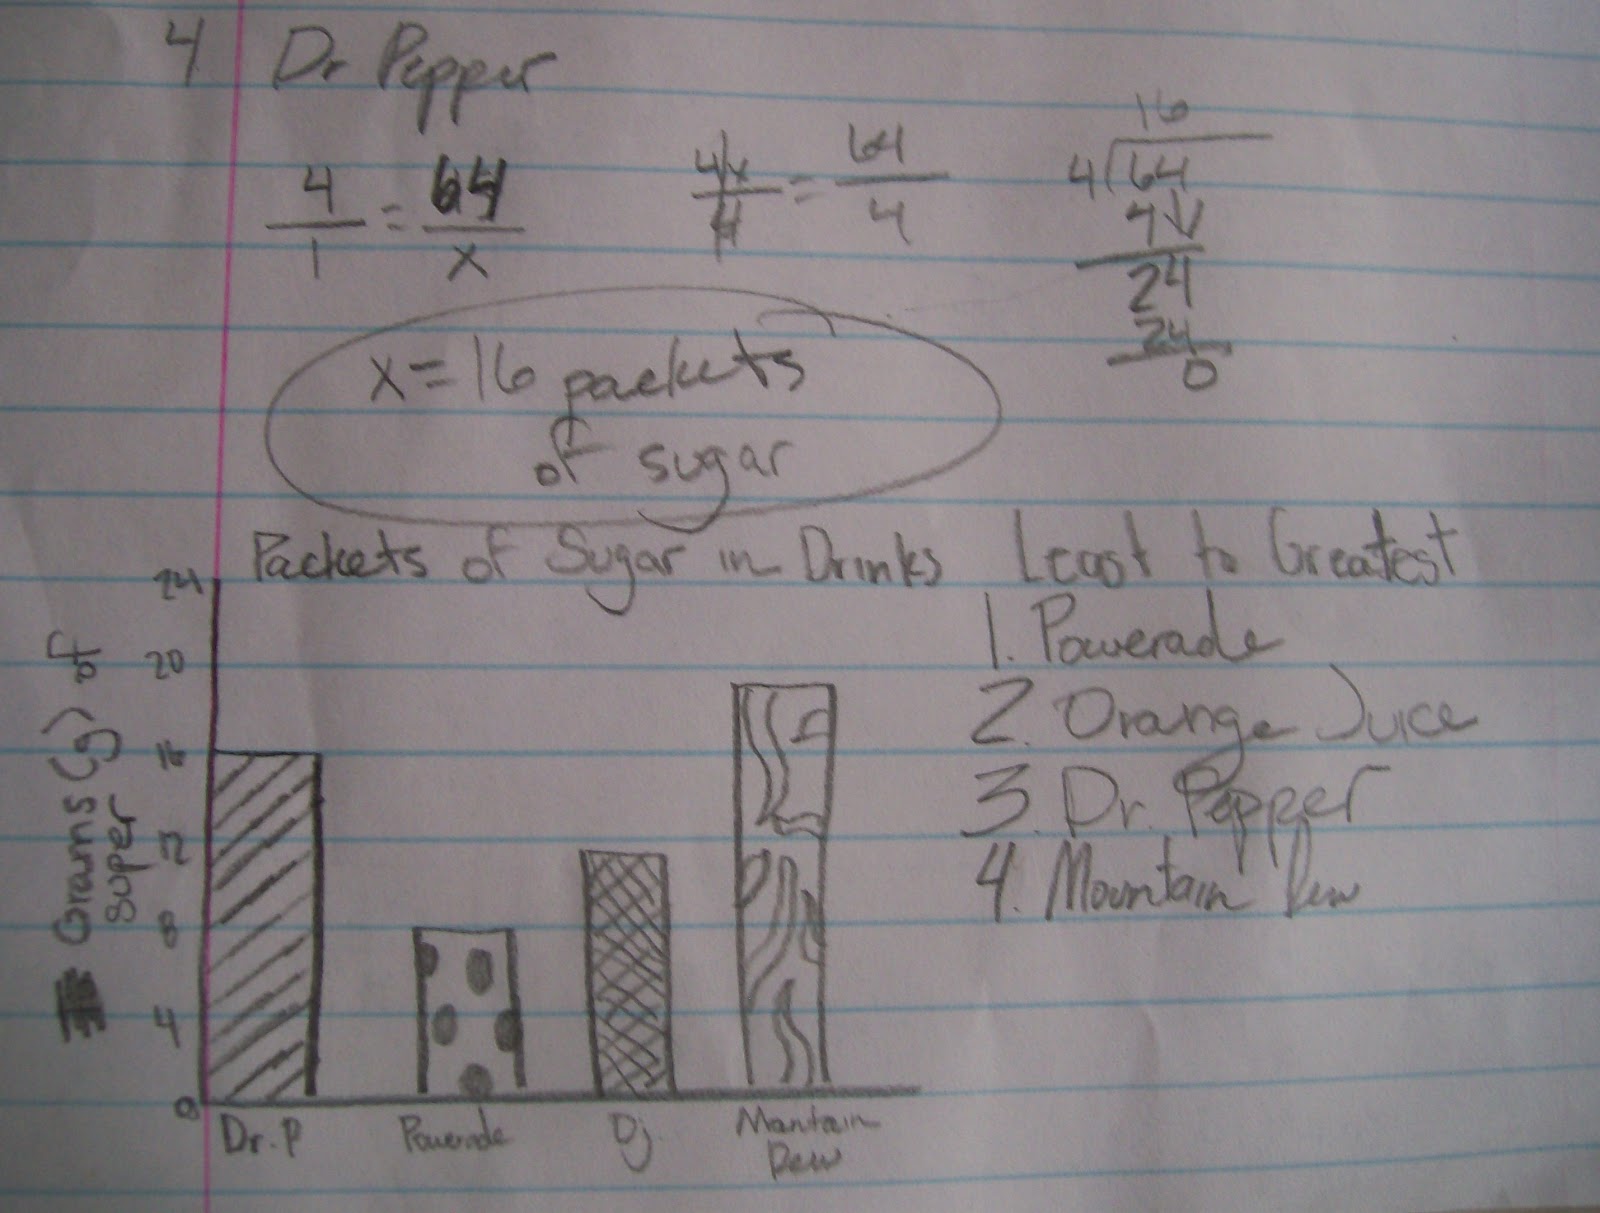 4 Dr Pepper
4/1 = 64/x
4x/4 = 64/4
16
4)64
4↓
24
24
0
x = 16 packets
of sugar
Packets of Sugar in Drinks
24
20
16
12
8
4
0
Grams (g) of
super
Dr. P
Powerade
Oj
Mantain
Dew
Least to Greatest
1. Powerade
2. Orange Juice
3. Dr. Pepper
4. Mountain Dew